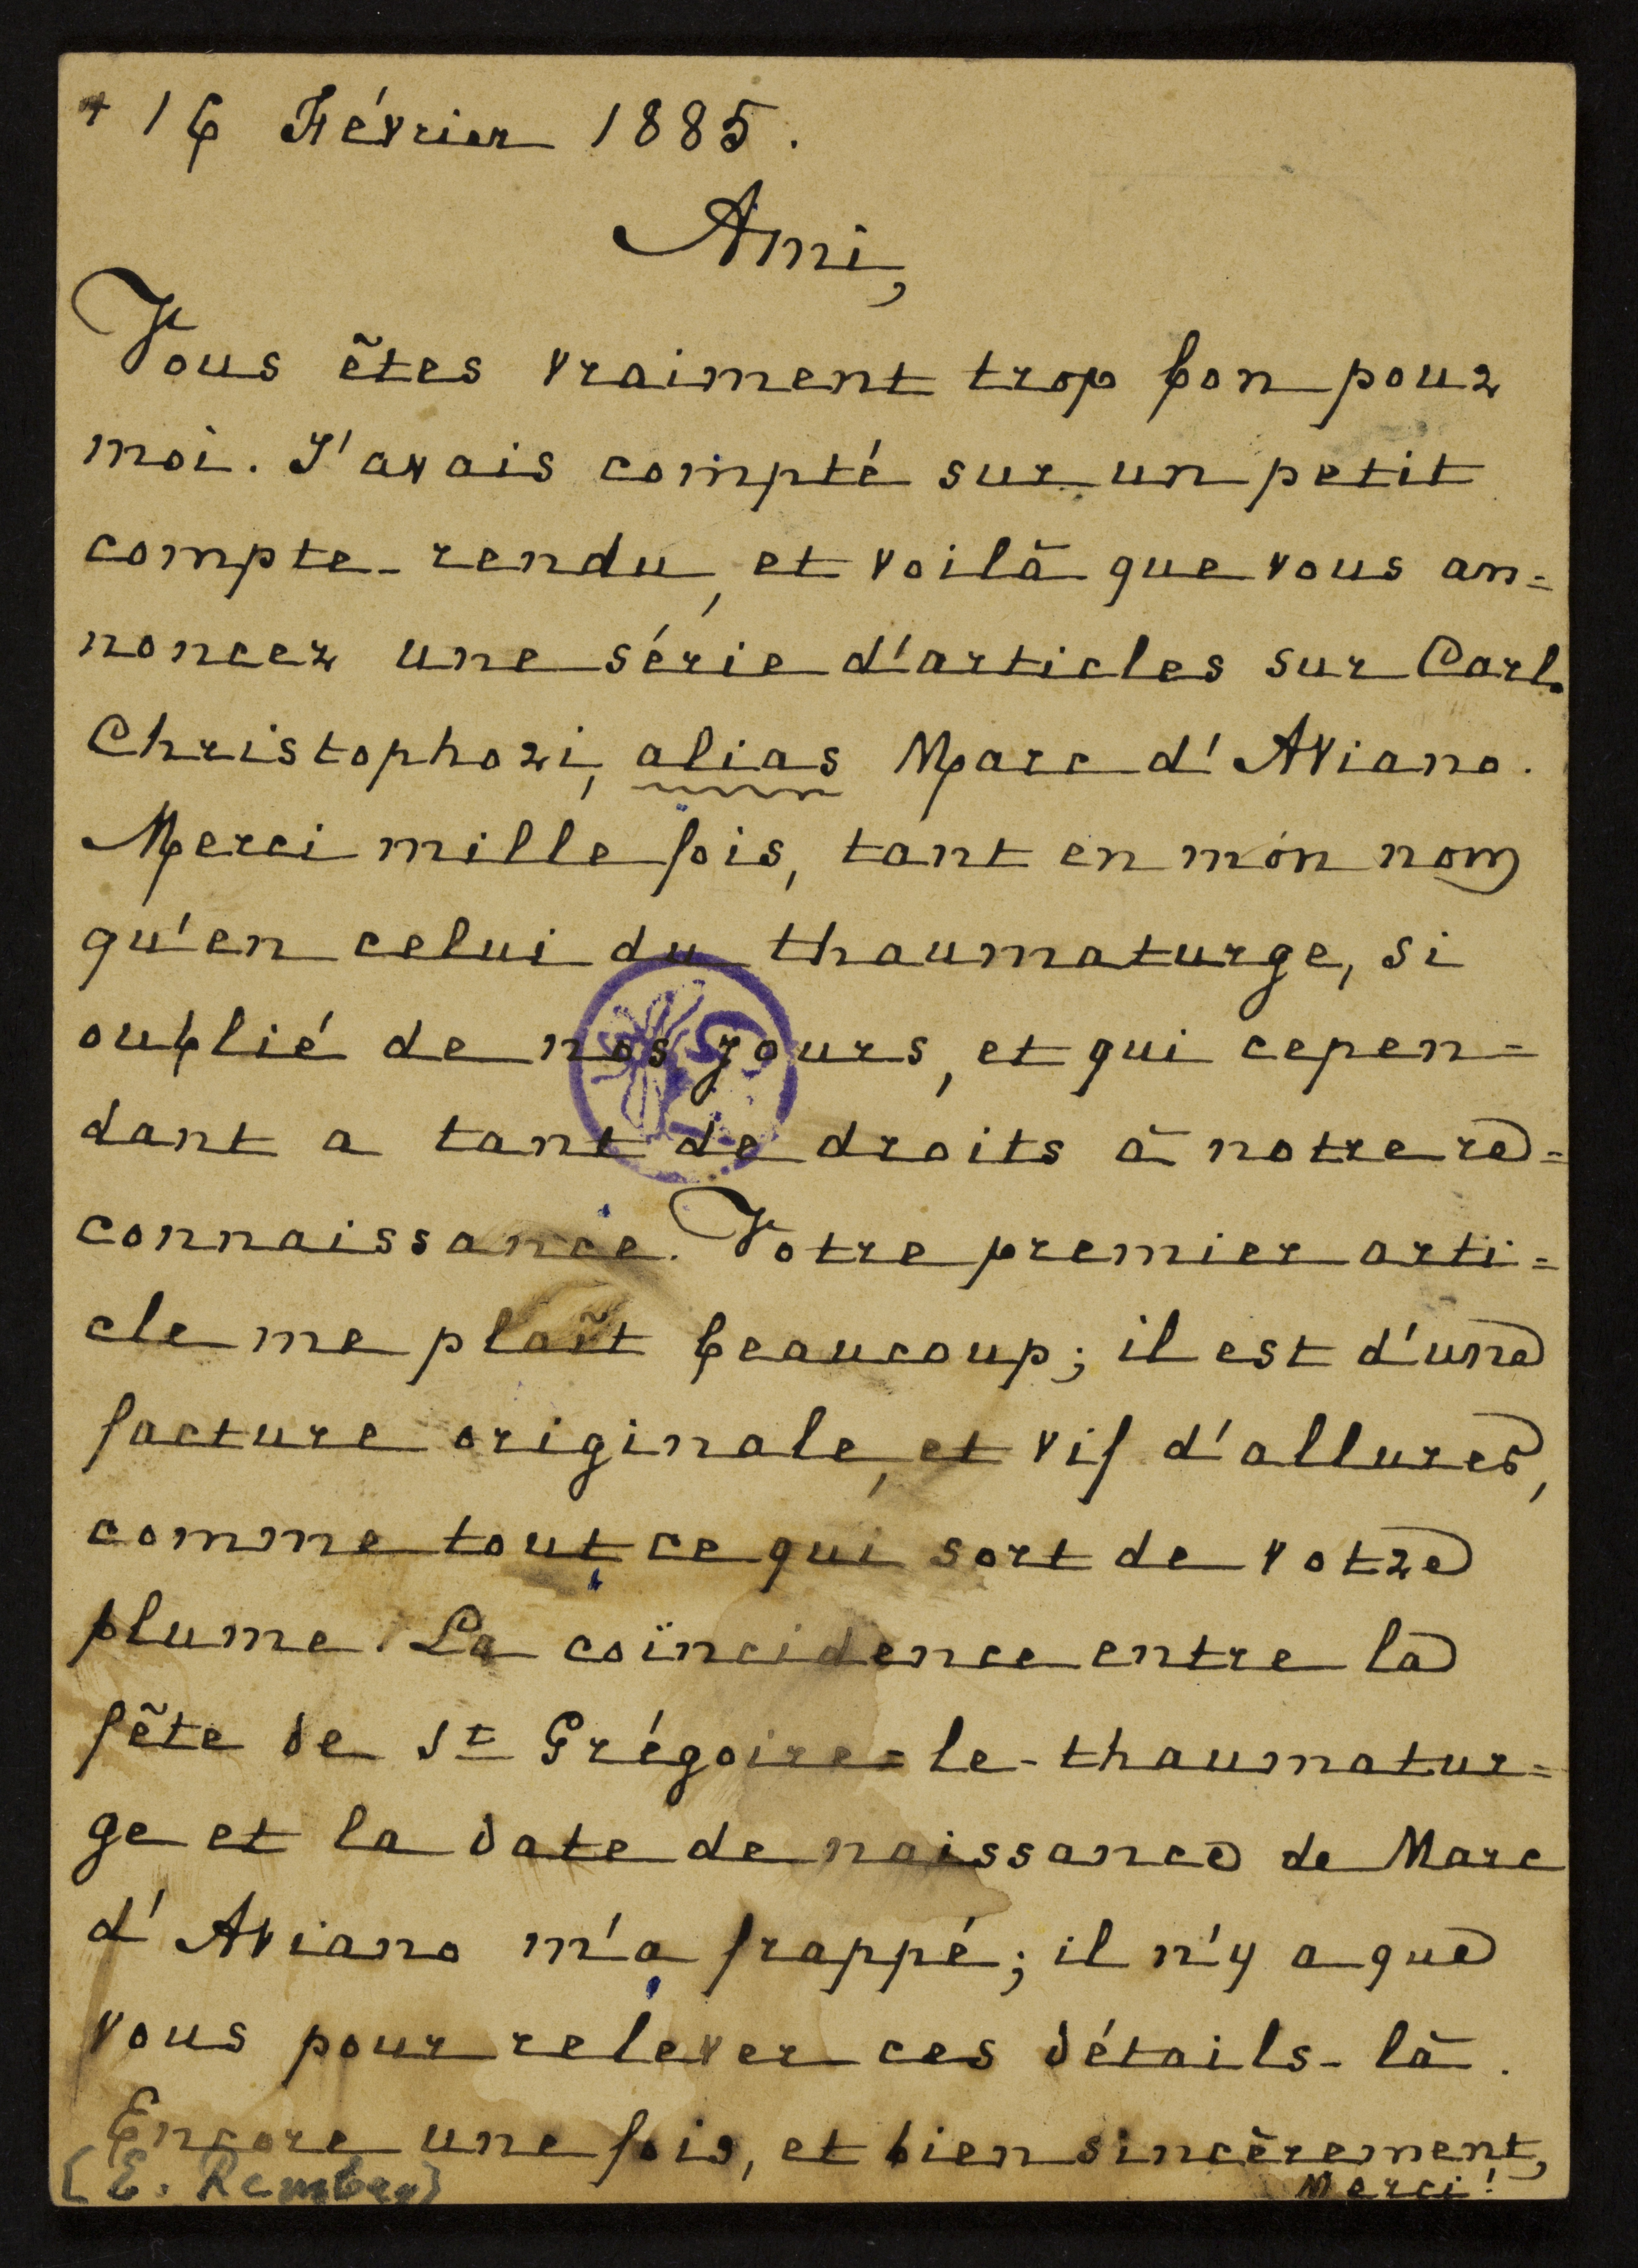 + 16 Février 1885.
Ami,
Vous êtes vraiment trop bon pour
moi. J'avais compté sur un petit
compte-rendu, et voilà que vous an=
noncez une série d'articles sur Carl.
Christophori, alias Marc d'Aviano.
Merci mille fois, tant en mon nom
qu'en celui du thaumaturge, si
oublié de nos jours, et qui cepen=
dant a tant de droits à notre re=
connaissance. Votre premier arti=
cle me plaît beaucoup; il est d'une
facture originale, et vif d'allures,
comme tout ce qui sort de votre
plume. La coïncidence entre la
fête de St Grégoire=le-thaumatur=
ge et la date de naissance de Marc
d'Aviano m'a frappé; il n'y a que
vous pour relever ces détails-là.
Encore une fois, et bien sincèrement,
Merci!
[E. Rembry]